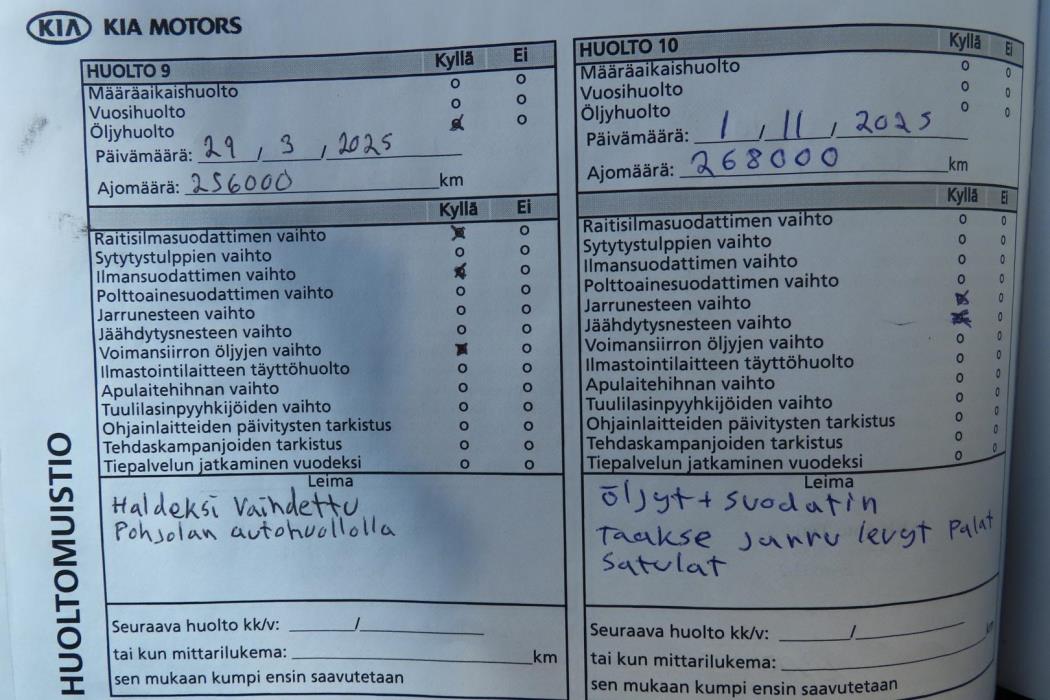 KIA KIA MOTORS
HUOLTO 9 Kyllä Ei
Määräaikaishuolto o o
Vuosihuolto o o
Öljyhuolto o o
Päivämäärä: 29 / 3 / 2025
Ajomäärä: 256000 km
Kyllä Ei
Raitisilmasuodattimen vaihto o
Sytytystulppien vaihto o o
Ilmansuodattimen vaihto o
Polttoainesuodattimen vaihto o o
Jarrunesteen vaihto o o
Jäähdytysnesteen vaihto o o
Voimansiirron öljyjen vaihto o
Ilmastointilaitteen täyttöhuolto o o
Apulaitehihnan vaihto o o
Tuulilasinpyyhkijöiden vaihto o o
Ohjainlaitteiden päivitysten tarkistus o o
Tehdaskampanjoiden tarkistus o o
Tiepalvelun jatkaminen vuodeksi o o
Leima
Haldeksi vaihdettu
Pohjolan autohuollolla
Seuraava huolto kk/v: /
tai kun mittarilukema: km
sen mukaan kumpi ensin saavutetaan
HUOLTO 10 Kyllä Ei
Määräaikaishuolto o o
Vuosihuolto o o
Öljyhuolto o o
Päivämäärä: 1 / 11 / 2025
Ajomäärä: 268000 km
Kyllä Ei
Raitisilmasuodattimen vaihto o o
Sytytystulppien vaihto o o
Ilmansuodattimen vaihto o o
Polttoainesuodattimen vaihto o o
Jarrunesteen vaihto o
Jäähdytysnesteen vaihto o
Voimansiirron öljyjen vaihto o o
Ilmastointilaitteen täyttöhuolto o o
Apulaitehihnan vaihto o o
Tuulilasinpyyhkijöiden vaihto o o
Ohjainlaitteiden päivitysten tarkistus o o
Tehdaskampanjoiden tarkistus o o
Tiepalvelun jatkaminen vuodeksi o
Leima
öljyt + suodatin
Taakse jarru levyt Palat
Satulat
Seuraava huolto kk/v: /
tai kun mittarilukema: km
sen mukaan kumpi ensin saavutetaan
HUOLTOMUISTIO